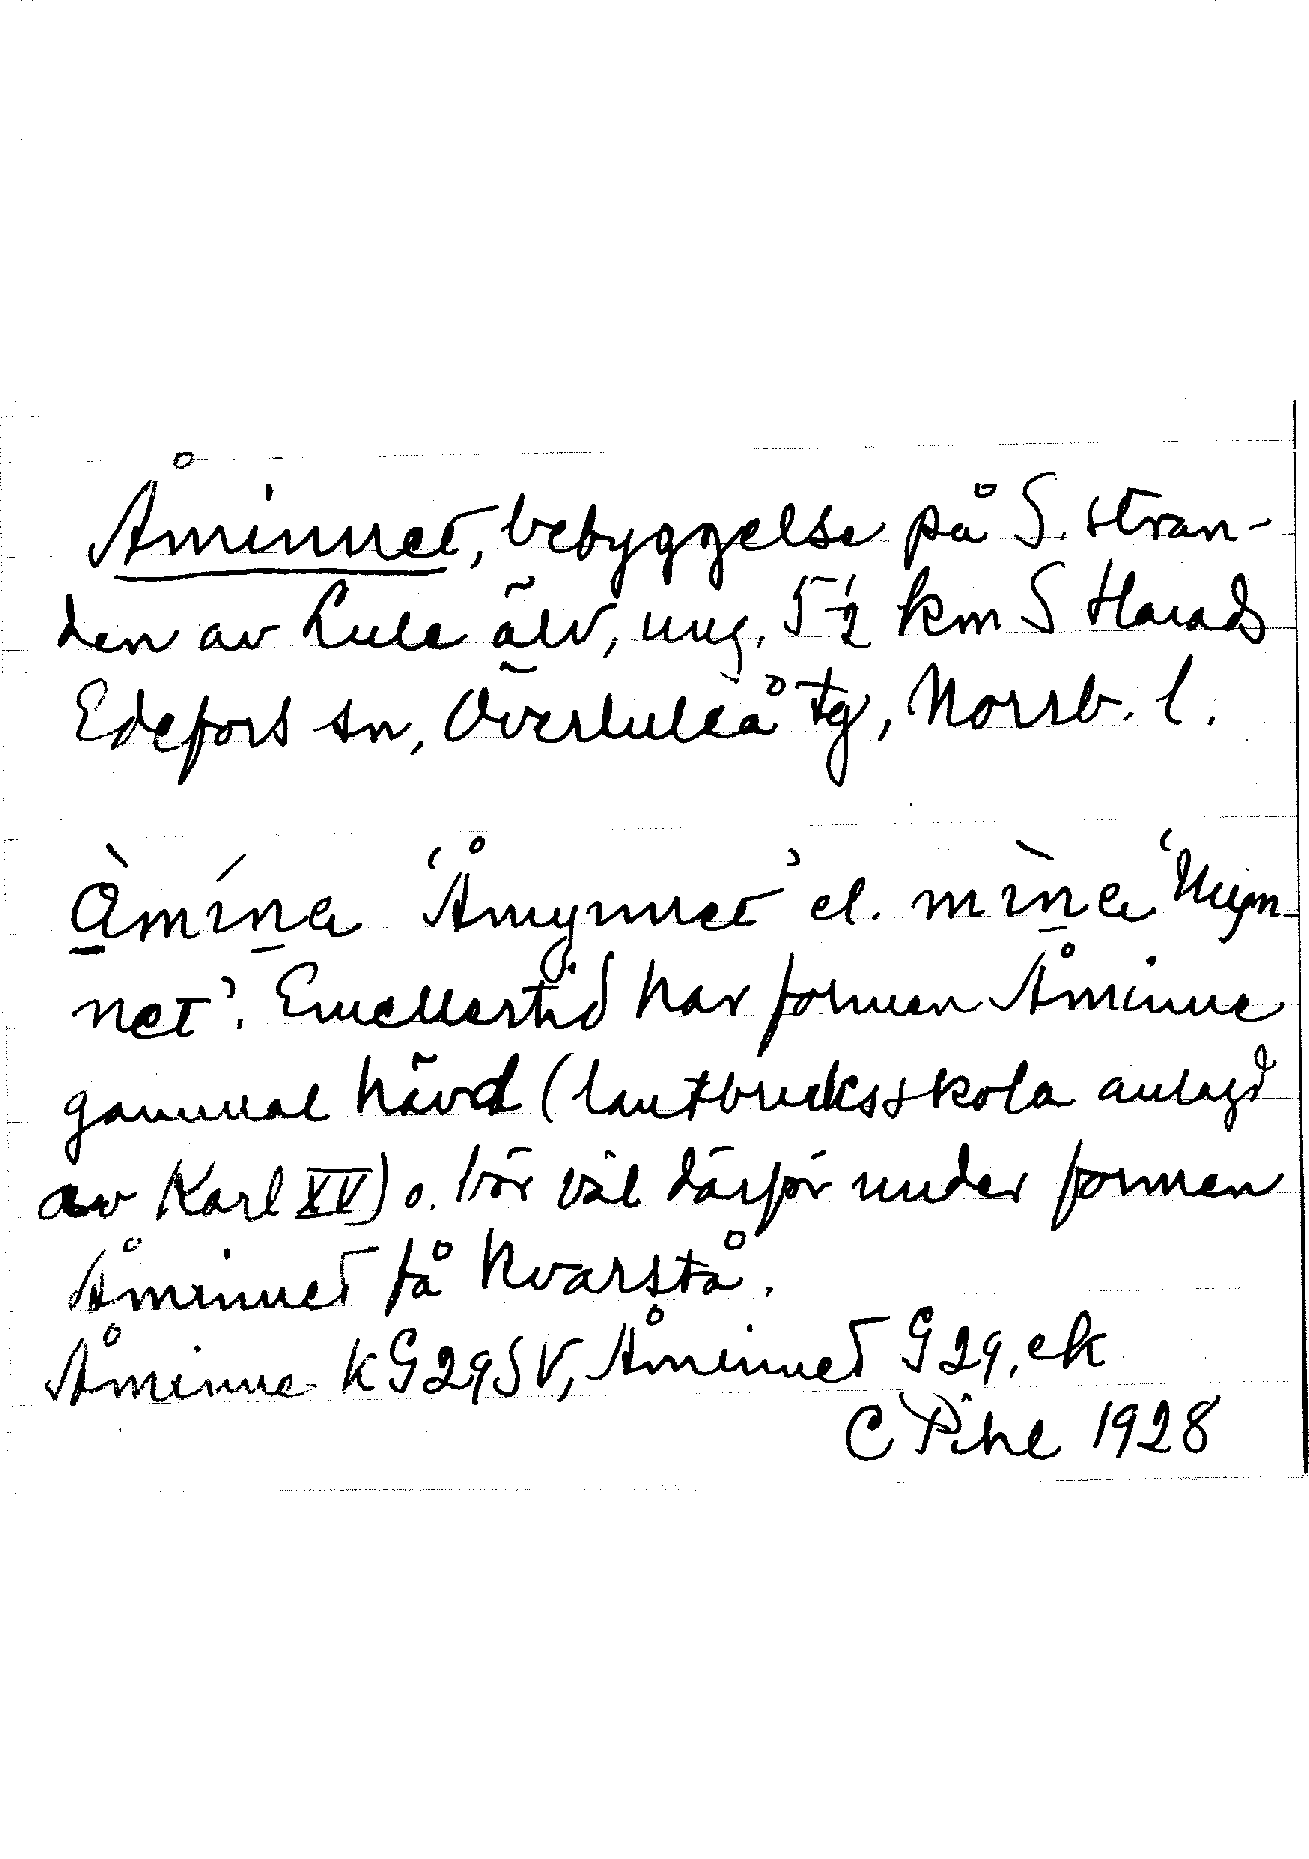 Åminnet, bebyggelse på S. stran-
den av Lule älv, ung. 5 1/2 km S Harads
Edefors sn, Överluleå tg, Norrb. l.
ὰmína 'Åmynnet' el. mìna 'Myn-
net'. Emellertid har formen Åminne
gammal hävd (lantbruksskola anlagd
av Karl XV) o. bör väl därför under formen
Åminnet få kvarstå.
Åminne KG29SV, Åminnet G29, ek
C Pihl 1928